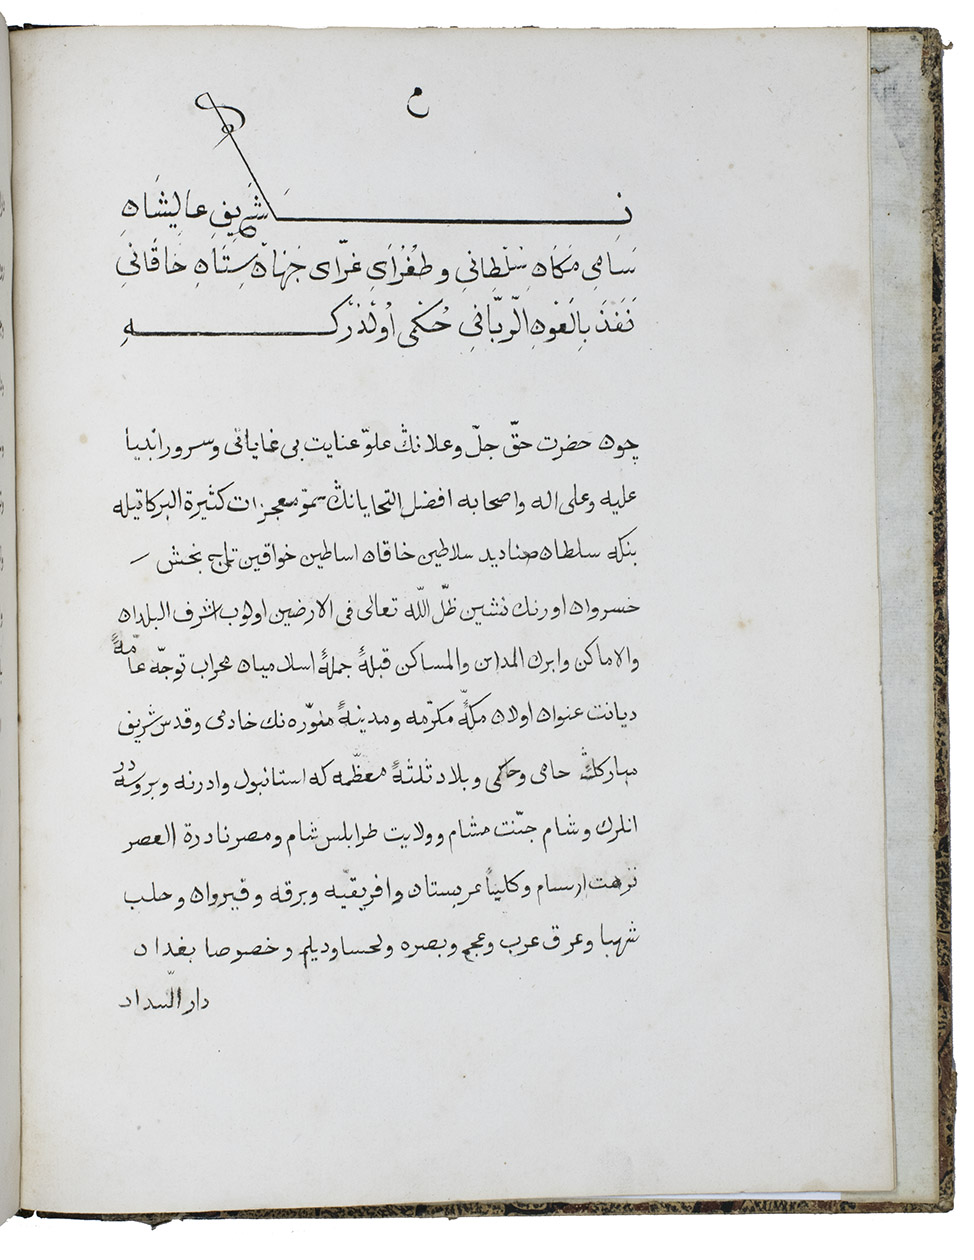 نشان شَرِيفِ عالِيشَانِ
سَامِي مَكَانِ سُلْطَانِي و طُغْرَايِ غَرَّاي جَهَانْ سِتَانِ خاقَانِي
نَفَذَ بِالعَونِ الرَّبّانِي حُكْمِي اُولْدُرْكه
چون حضرت حقّ جلّ وعلانڭ علوّ عنايت بی غاياتی وسرور انبيا
عليه وعلى اله واصحابه افضل التحايانڭ سموّ معجزات كثيرة البركاتيله
بنكه سلطان صناديد سلاطين خاقان اساطين خواقين تاج بخش
خسروان اورنك نشين ظلّ اللّه تعالى فی الارضين اولوب اشرف البلدان
والاماكن وابرك المداين والمساكن قبلهٔ جملهٔ اسلاميان محراب توجّه عامّهٔ
ديانت عنوان اولان مكّهٔ مكرّمه ومدينهٔ منوّره نك خادمی وقدس شريف
مباركڭ حامی وحاكمی وبلاد ثلثهٔ معظّمه كه استانبول وادرنه وبروسه در
انلرك وشام جنّت مشام وولايت طرابلس شام ومصر نادرة العصر
نزهت ارسام وكليا عربستان وافريقيّه وبرقه وقيروان وحلب
شهبا وعرق عرب وعجم وبصره ولحسا وديلم وخصوصا بغداد
دار السّداد